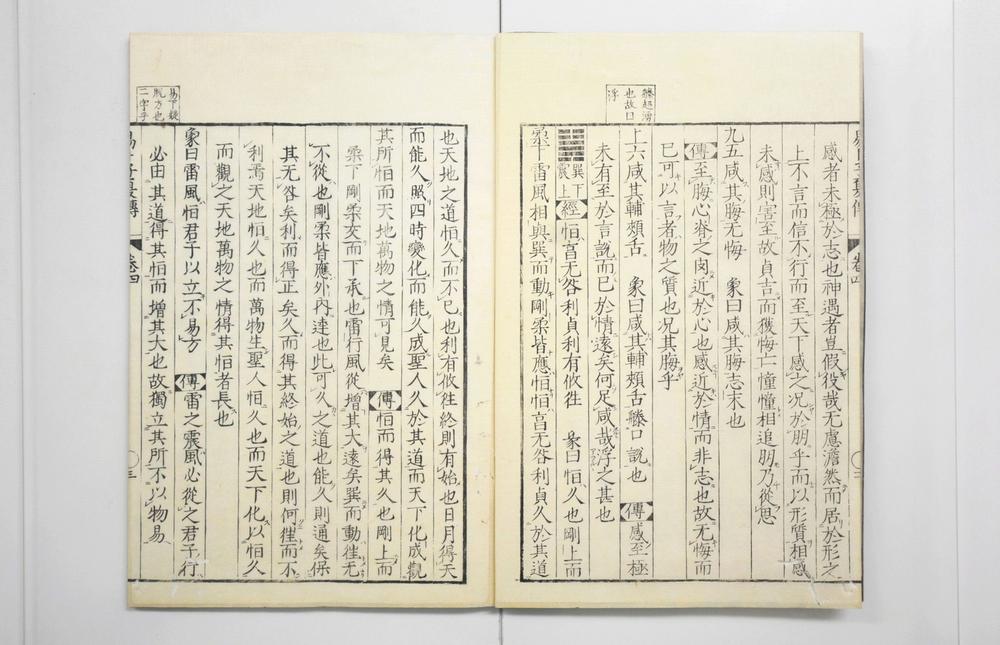 縢
也故口
浮
感者未極於志也神遇者豈假役哉无慮澹然而居於形之
上不言而信不行而至天下感之况於朋乎而以形質相感
未感則害至故貞吉而獲悔亡憧憧相追朋乃從思
九五咸其脢无悔 象曰咸其脢志末也
傳至脢心脊之近於心也感近於情而非志也故无悔而
已可以言者物之質也况其脢乎
上六咸其輔頰舌 象曰咸其輔頰舌縢口說也 傳感至極
未有至於言說而已於情遠矣何足咸哉浮之甚也
巽下
震上
經恒亨无咎利貞利有攸往 彖曰恒久也剛上而
柔下雷風相與巽而動剛柔皆應恒恒亨无咎利貞久於其道
卷四
三
也天地之道恒久而不已也利有攸往終則有始也日月得天
而能久照四時變化而能久成聖人久於其道而天下化成觀
其所恒而天地萬物之情可見矣 傳恒而得其久也剛上而
柔下剛柔交而下承也雷行風從增其大遠矣巽而動往无
不從也剛柔皆應外內達也此可久之道也能久則通矣保
其无咎矣利而得正矣久而得其終始之道也則何往而不
利焉天地恒久也而萬物生聖人恒久也而天下化以恒久
而觀之天地萬物之情得其恒者長也
象曰雷風恒君子以立不易方 傳雷之震風必從之君子行
必由其道得其恒而增其大也故獨立其所不以物易
卷四
易下疑
脫方也
二字乎